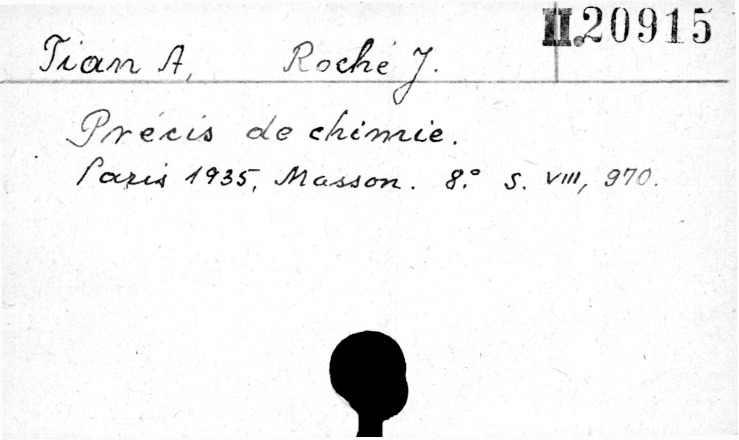 II.20915
Tian A, Roché J.
Précis de chimie.
Paris 1935, Masson. 8.° s. VIII, 970.